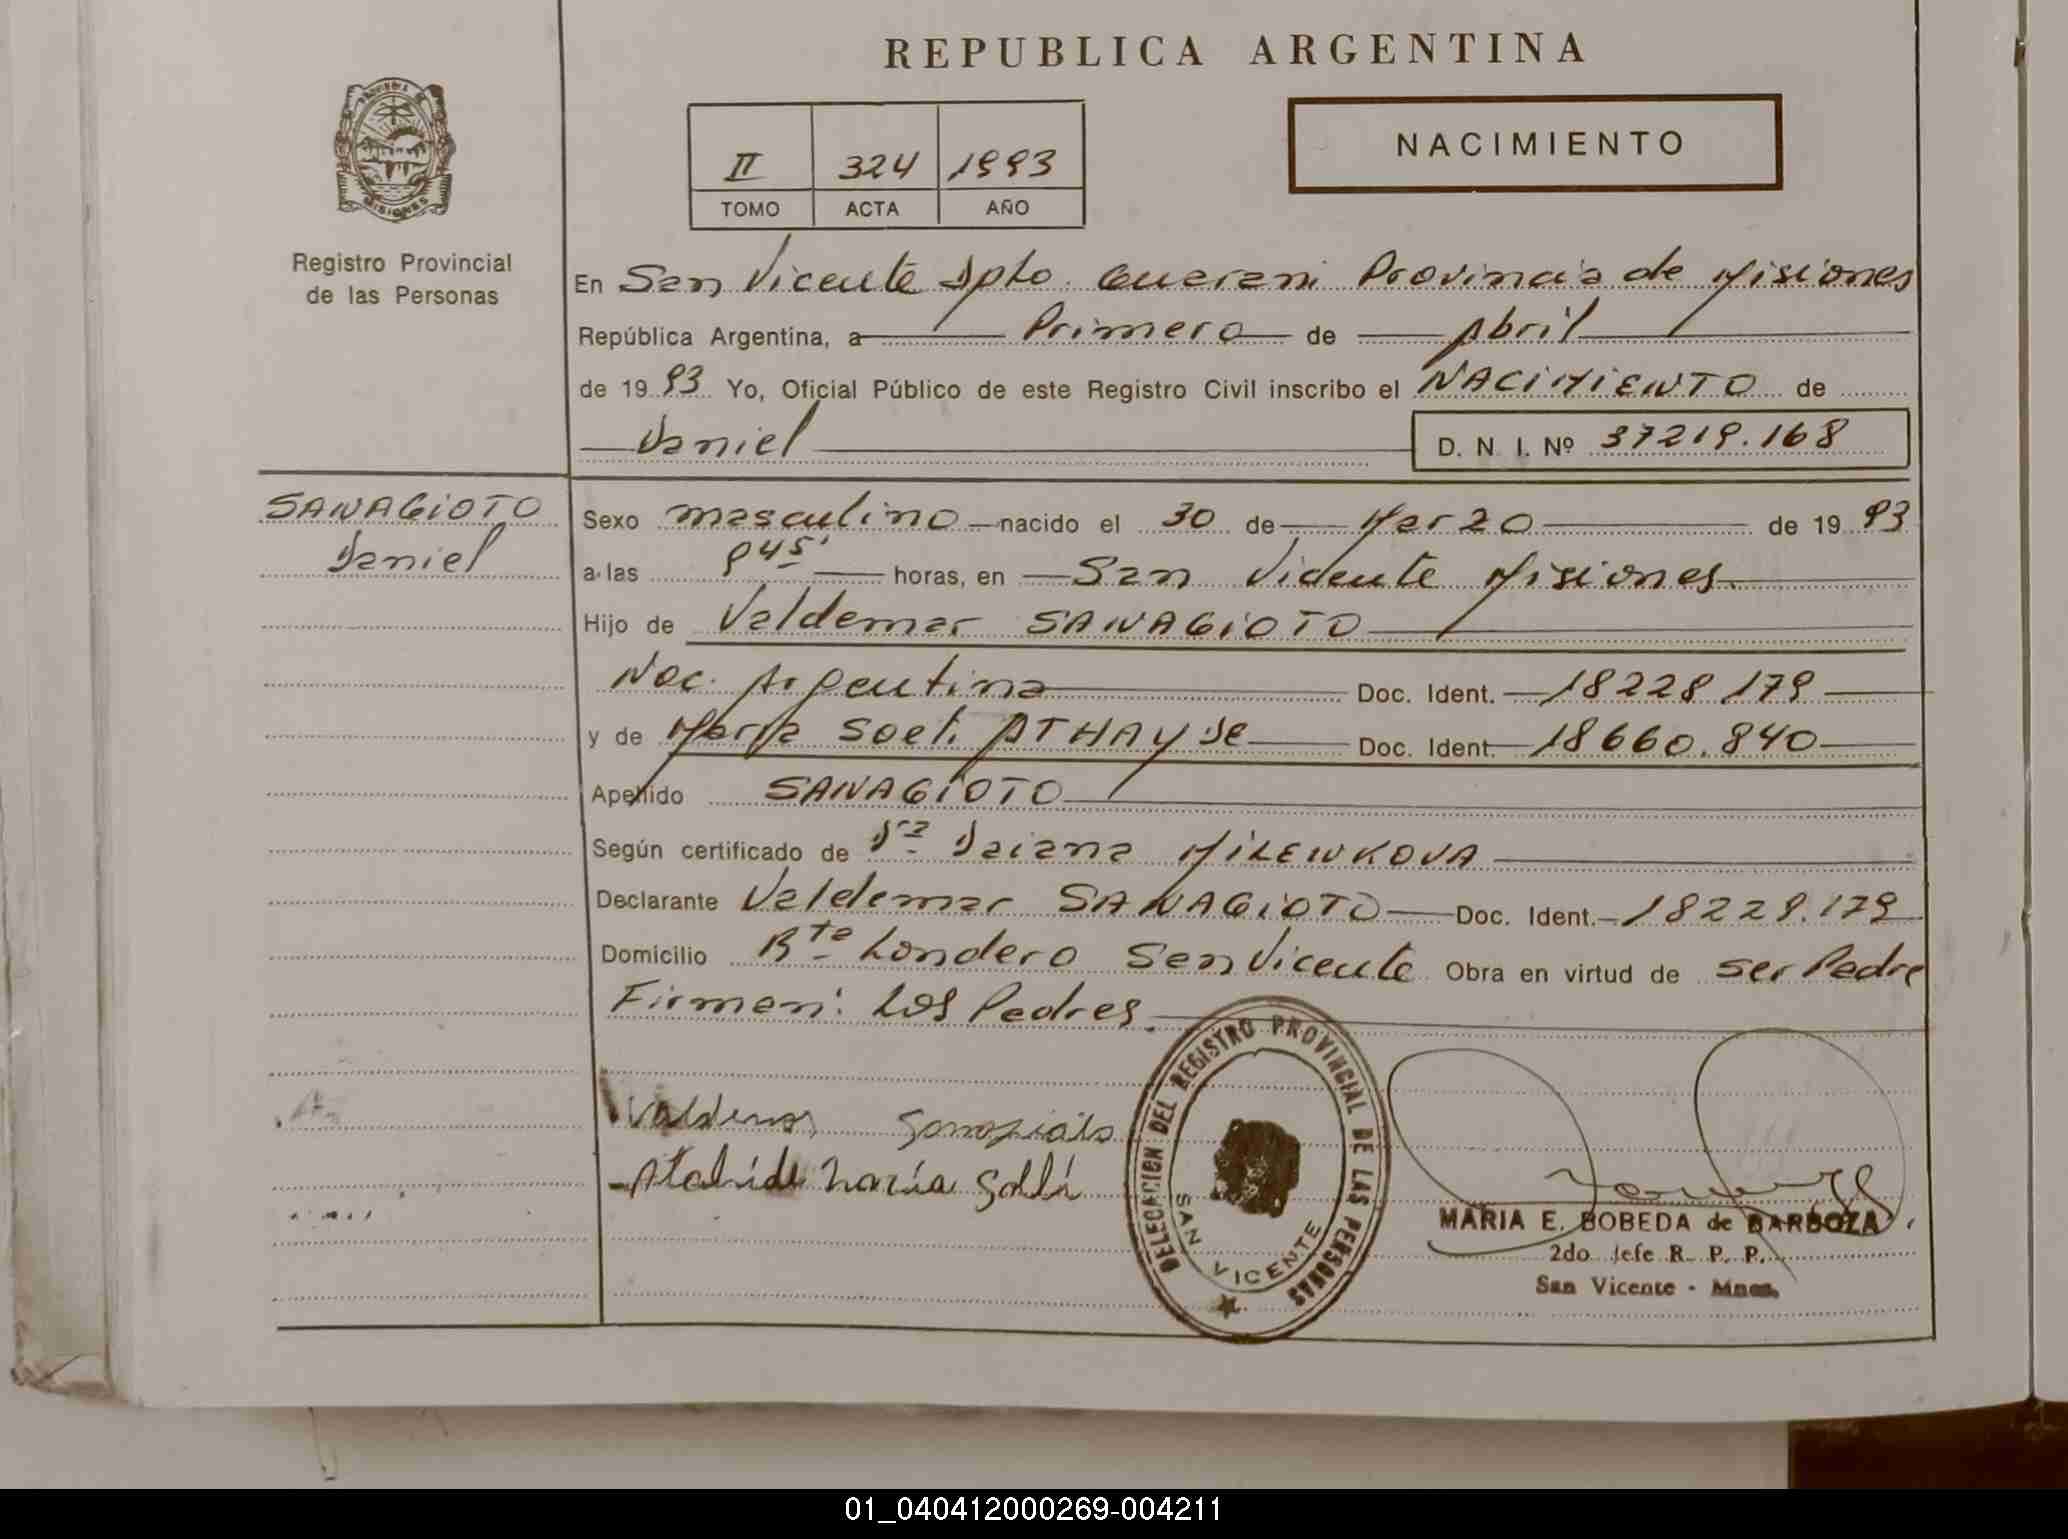 REPUBLICA ARGENTINA
NACIMIENTO
II 324 1993
TOMO ACTA AÑO
MISIONES
Registro Provincial
de las Personas
En San Vicente Dpto. Guarani Provincia de Misiones
República Argentina, a Primero de Abril
de 1993 Yo, Oficial Público de este Registro Civil inscribo el NACIMIENTO de
Daniel D. N. I. Nº 37219.168
SANAGIOTO
Daniel
Sexo masculino nacido el 30 de Marzo de 1993
a las 9 45' horas, en San Vicente Misiones.
Hijo de Valdemar SANAGIOTO
Nac. Argentina Doc. Ident. 18228.179
y de Maria Soeli ATHAYDE Doc. Ident. 18660.840
Apellido SANAGIOTO
Según certificado de Dra Daiana MILENKOVA
Declarante Valdemar SANAGIOTO Doc. Ident. 18228.179
Domicilio Bto Londero San Vicente Obra en virtud de ser Padre
Firman: Los Padres.
Valdemar
Maria
DELEGACION DEL REGISTRO PROVINCIAL DE LAS PERSONAS
SAN VICENTE
MARIA E. BOBEDA de BARBOZA
2do Jefe R. P. P.
San Vicente - Mnes.
01_040412000269-004211